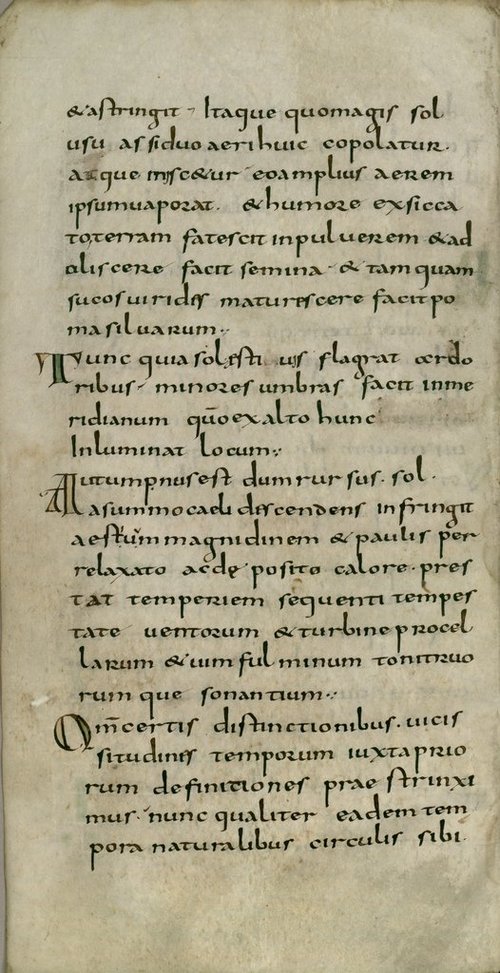 & astringit · Itaque quomagis sol
usu assiduo aeri huic copolatur·
atque misc&ur eo amplius aerem
ipsum uaporat· & humore exsicca
to terram fatescit in puluerem & ad
oliscere facit semina · & tam quam
sucos uirides maturescere facit po
ma siluarum·,
Tunc quia sol flagrat ardo
ribus· minores umbras facit in me
ridianum qūo ex alto hunc
Inluminat locum·,
Autumpnus est dum rursus · sol ·
a summo caeli descendens infringit
aestuum magnidinem & paulis per
relaxato ac deposito calore · pres
tat temperiem sequenti tempes
tate uentorum & turbine procel
larum & uim fulminum tonitruo
rum que sonantium·,
Om̄ certis distinctionibus · uicis
situdines temporum iuxta prio
rum definitiones praestrinxi
mus· nunc qualiter eadem tem
pora naturalibus circulis sibi·